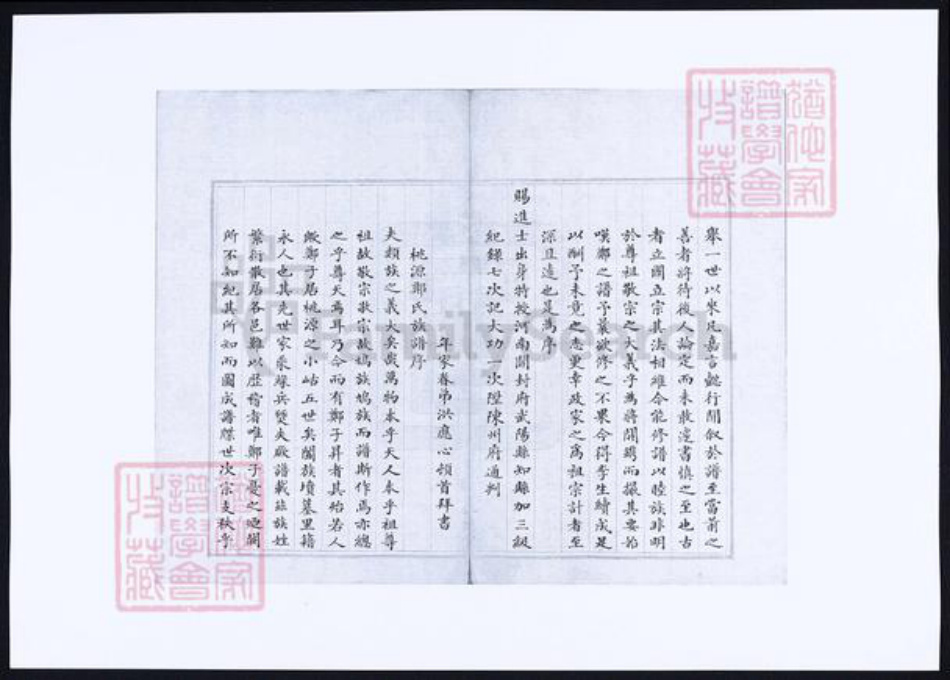 舉一世以來凡嘉言懿行間叙於譜至當前之
善者將待後人論定而未敢遽書慎之至也古
者立國立宗其法相維今能修譜以睦族非明
於尊祖敬宗之大義乎為將開鐫而撮其要始
嘆鄭之譜予曩欲修之不果今得李生續成是
以酬予未竟之志更幸政家之為祖宗計者至
深且遠也是為序
賜進士出身特授河南開封府武陽縣知縣加三級
紀錄七次記大功一次陞陳州府通判
年家眷弟洪應心頓首拜書
桃源鄭氏族譜序
夫類族之義大矣哉萬物本乎天人本乎祖尊
祖故敬宗敬宗故鳩族鳩族而譜斯作焉亦總
之乎尊天焉耳乃今而有鄭子昇者其殆若人
歟鄭子居桃源之小岵五世矣闔族墳墓里籍
永人也其先世家乘燬兵燹夫厥譜載茲族姓
繁衍散居各邑難以歷稽者唯鄭子憂之迺闕
所不知紀其所知而圖成譜牒世次宗支秩乎
猶他家
譜學會
收藏
猶他家
譜學會
收藏
FamilySearch